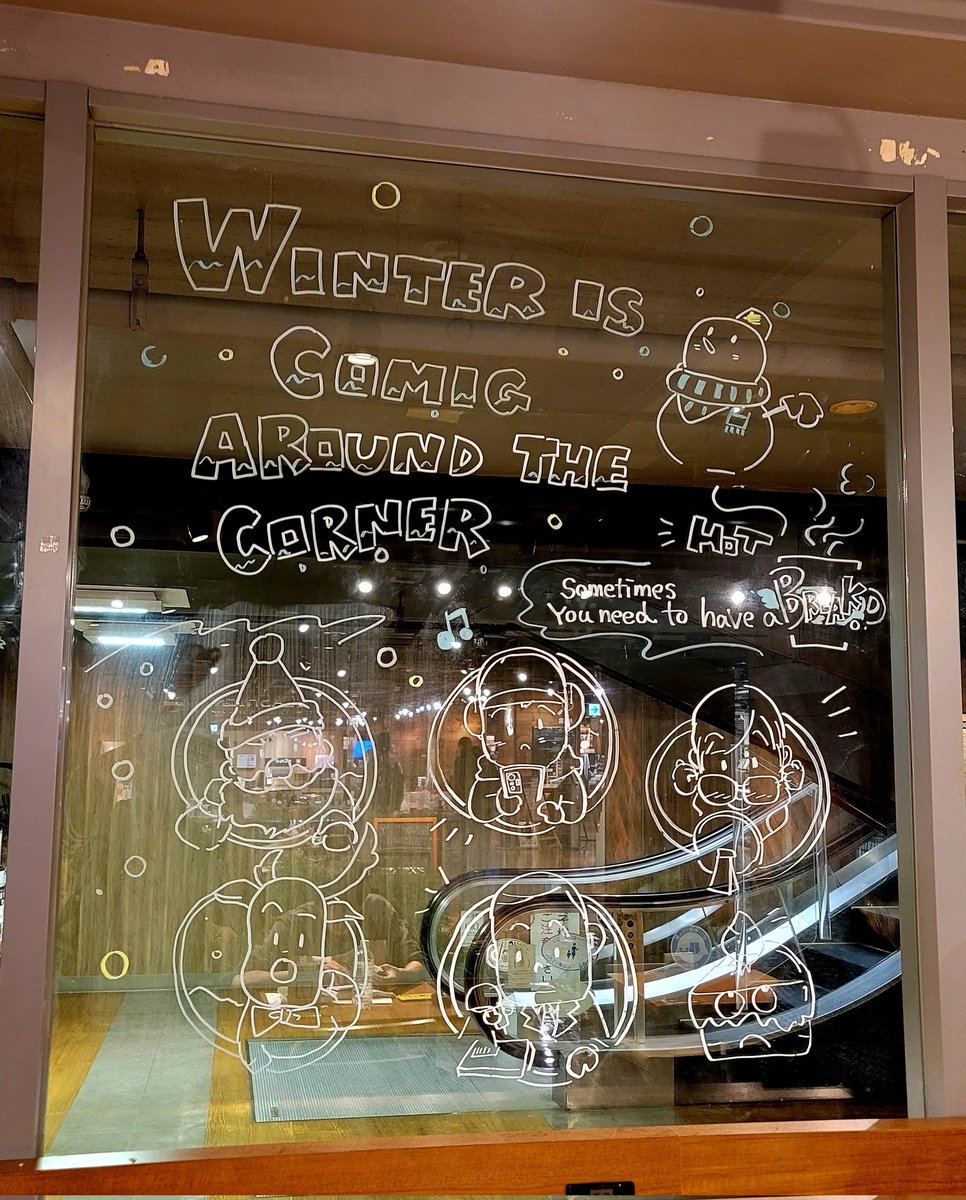 WINTER IS
COMIG
AROUND THE
CORNER
HOT
Sometimes
You need to have a BREAKD